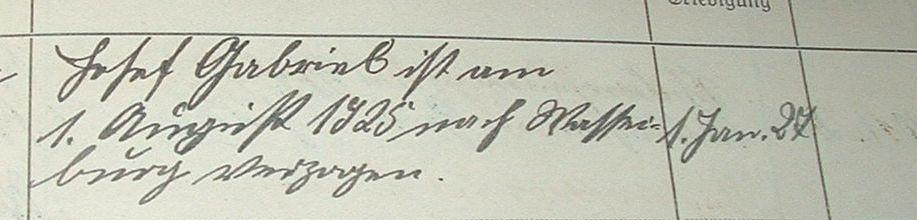 Erledigung
Josef Gabriel ist am
1. August 1925 nach Wasser= 1. Jan. 27
burg verzogen.